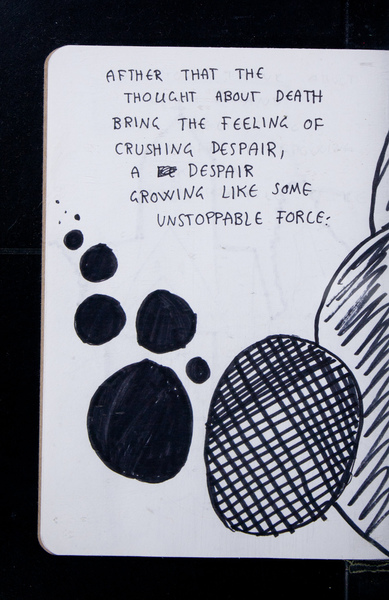 AFTHER THAT THE
THOUGHT ABOUT DEATH
BRING THE FEELING OF
CRUSHING DESPAIR,
A DESPAIR
GROWING LIKE SOME
UNSTOPPABLE FORCE: